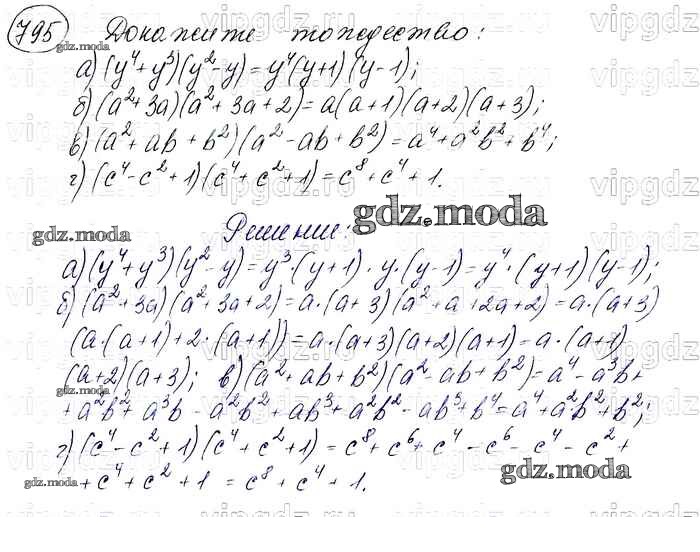 795 Докажите тождество:
а) (y⁴+y³)(y²-y)=y⁴(y+1)(y-1);
б) (a²+3a)(a²+3a+2)=a(a+1)(a+2)(a+3);
в) (a²+ab+b²)(a²-ab+b²)=a⁴+a²b²+b⁴;
г) (c⁴-c²+1)(c⁴+c²+1)=c⁸+c⁴+1.
Решение:
gdz.moda
а) (y⁴+y³)(y²-y)=y³·(y+1)·y·(y-1)=y⁴·(y+1)(y-1);
б) (a²+3a)(a²+3a+2)=a·(a+3)(a²+a+2a+2)=a·(a+3)
(a·(a+1)+2·(a+1))=a·(a+3)(a+2)(a+1)=a·(a+1)
(a+2)(a+3); в) (a²+ab+b²)(a²-ab+b²)=a⁴-a³b+
+a²b²+a³b-a²b²+ab³+a²b²-ab³+b⁴=a⁴+a²b²+b²;
г) (c⁴-c²+1)(c⁴+c²+1)=c⁸+c⁶+c⁴-c⁶-c⁴-c²+
+c⁴+c²+1=c⁸+c⁴+1.
gdz.moda